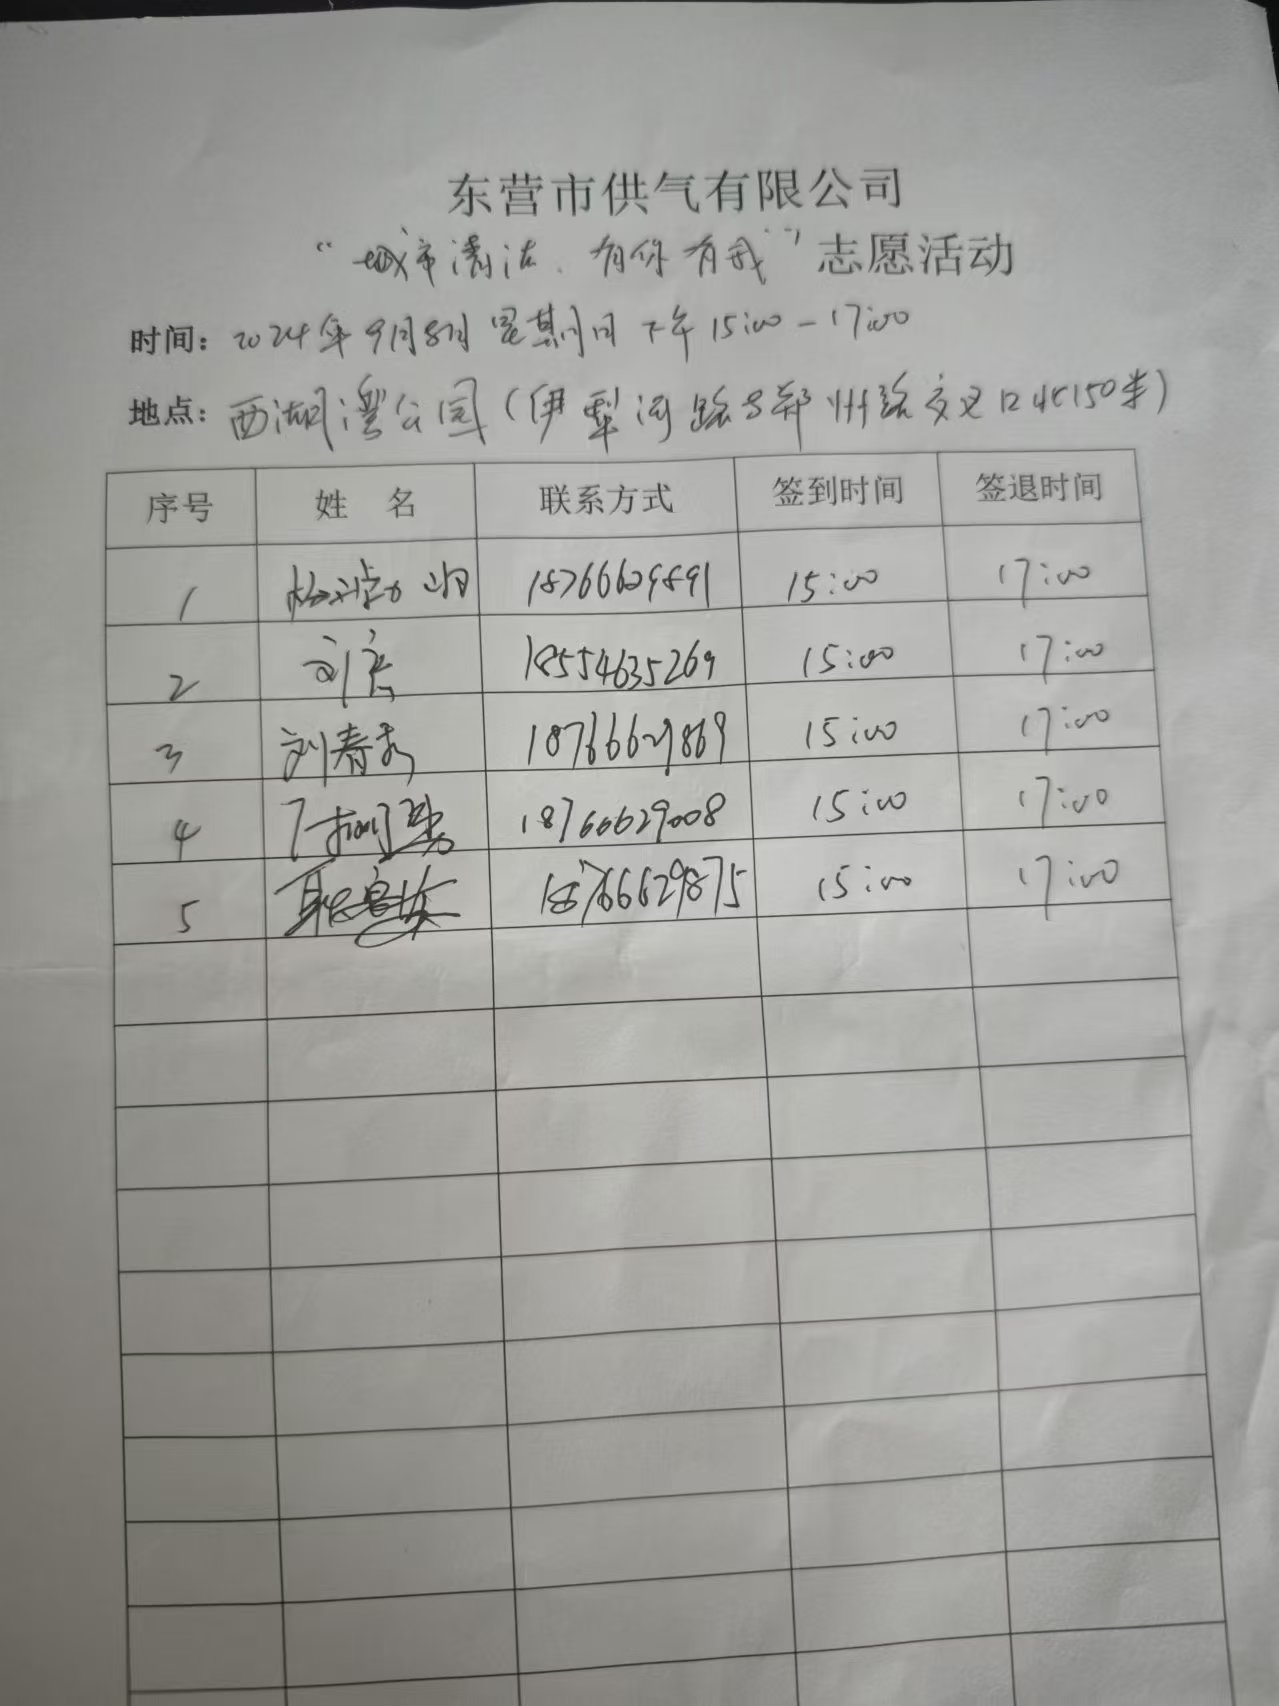 东营市供气有限公司
“城市清洁、有你有我”志愿活动
时间：2024年9月8日 星期日 下午 15:00-17:00
地点：西湖湾公园（伊犁河路与郑州路交叉口北150米）
序号 姓 名 联系方式 签到时间 签退时间
1 18766629891 15:00 17:00
2 刘 18554635269 15:00 17:00
3 刘春 18766629869 15:00 17:00
4 18766629008 15:00 17:00
5 18766629875 15:00 17:00